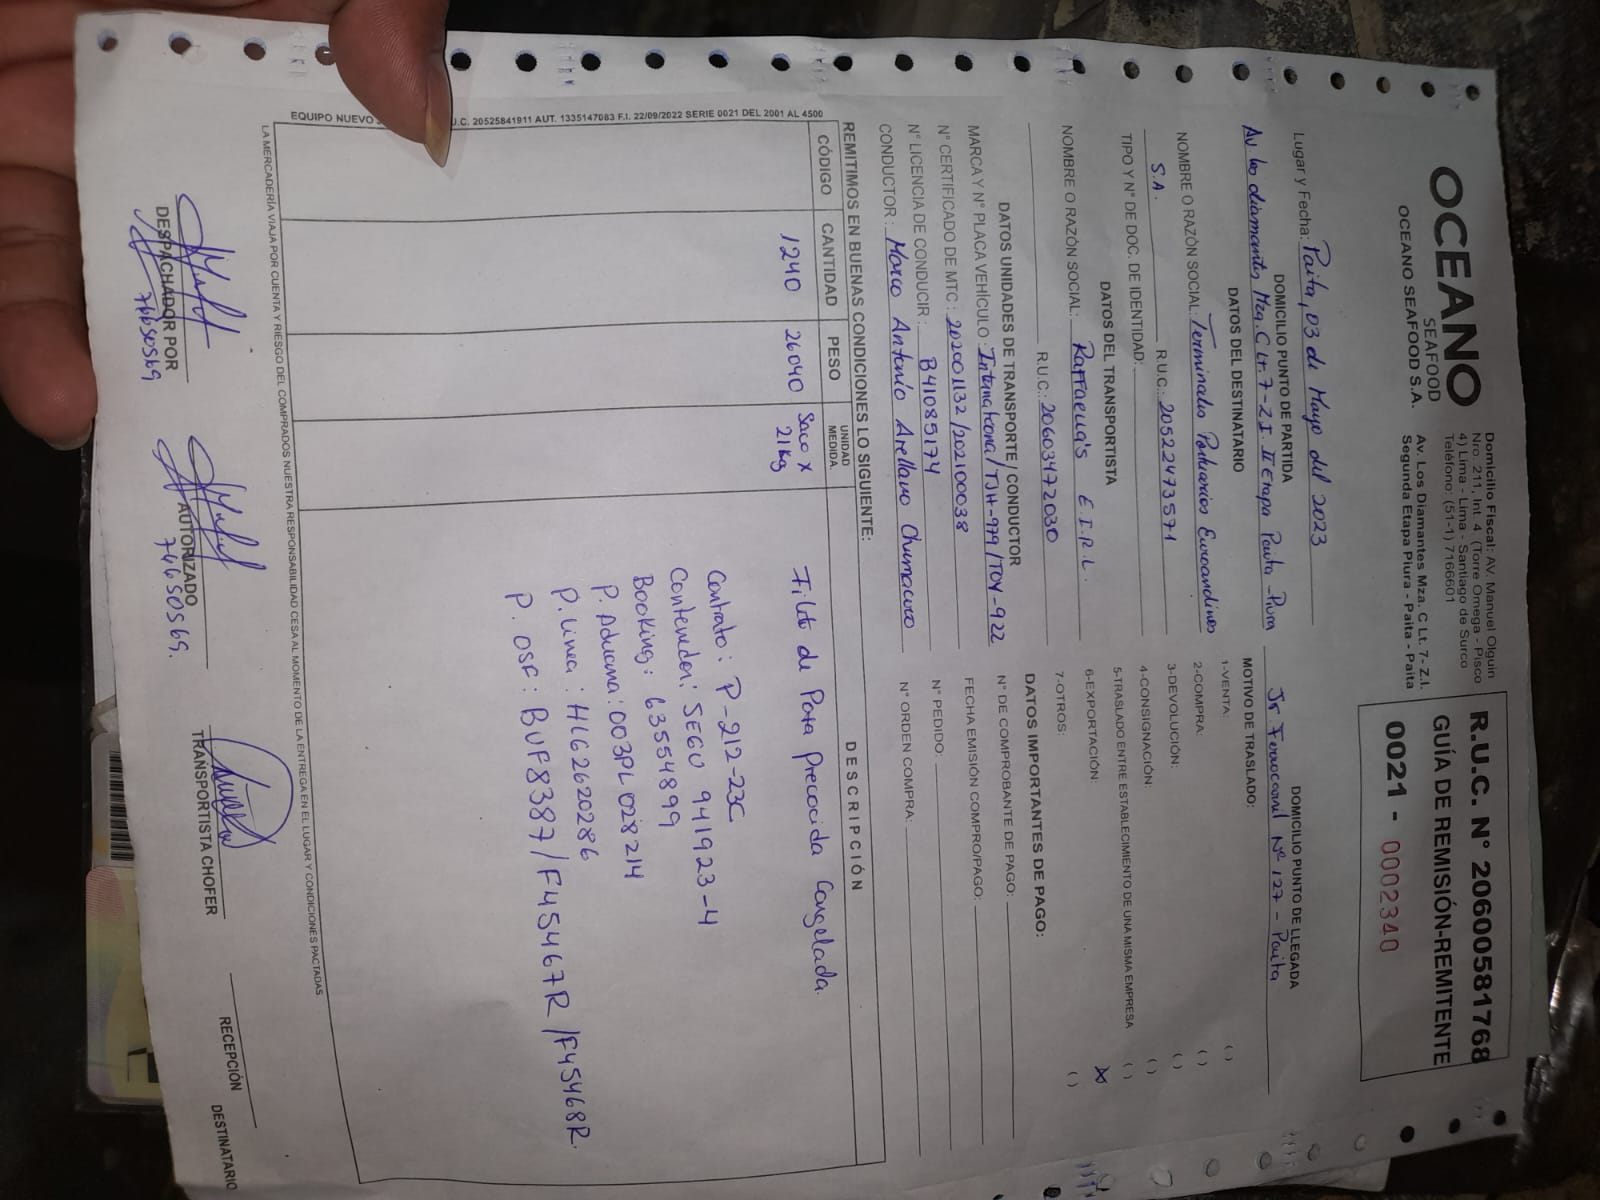 OCEANO
SEAFOOD
OCEANO SEAFOOD S.A.
Domicilio Fiscal: AV. Manuel Olguin
Nro. 211, Int. 4 (Torre Omega - Pisco
4) Lima - Lima - Santiago de Surco
Teléfono: (51-1) 7166601
Av. Los Diamantes Mza. C Lt. 7- Z.I.
Segunda Etapa Piura - Paita - Paita
R.U.C. N° 20600581768
GUÍA DE REMISIÓN-REMITENTE
0021 - 0002340
Lugar y Fecha: Paita, 03 de Mayo del 2023
DOMICILIO PUNTO DE PARTIDA
Av. los diamantes Mza. C Lt. 7-Z.I. II Etapa Paita - Piura
DOMICILIO PUNTO DE LLEGADA
Jr Ferrocarril N° 127 - Paita
DATOS DEL DESTINATARIO
NOMBRE O RAZÓN SOCIAL: Terminales Portuarios Euroandinos
S.A. R.U.C.: 20522473571
TIPO Y N° DE DOC. DE IDENTIDAD:
DATOS DEL TRANSPORTISTA
NOMBRE O RAZÓN SOCIAL: Raffaella's E.I.R.L.
R.U.C.: 20603472030
DATOS UNIDADES DE TRANSPORTE / CONDUCTOR
MARCA Y N° PLACA VEHÍCULO: International/TJH-979/TOY-922
N° CERTIFICADO DE MTC: 202001132/202100038
N° LICENCIA DE CONDUCIR: B41085174
CONDUCTOR: Marco Antonio Arellano Chumacero
MOTIVO DE TRASLADO:
1-VENTA: ( )
2-COMPRA: ( )
3-DEVOLUCIÓN: ( )
4-CONSIGNACIÓN: ( )
5-TRASLADO ENTRE ESTABLECIMIENTO DE UNA MISMA EMPRESA ( )
6-EXPORTACIÓN: X
7-OTROS: ( )
DATOS IMPORTANTES DE PAGO:
N° DE COMPROBANTE DE PAGO:
FECHA EMISIÓN COMPRO/PAGO:
N° PEDIDO:
N° ORDEN COMPRA:
REMITIMOS EN BUENAS CONDICIONES LO SIGUIENTE:
CÓDIGO CANTIDAD PESO UNIDAD MEDIDA DESCRIPCIÓN
1240 26040 Saco x 21kg Filete de Pota Precocida Congelada.
Contrato: P-212-23C
Contenedor: SEGU 941923-4
Booking: 635554899
P. Aduana: 003PL028214
P. Linea: HLG2620286
P. OSF: BUF8387/F45467R/F45468R.
EQUIPO NUEVO
U.C. 20525841911 AUT. 1335147083 F.I. 22/09/2022 SERIE 0021 DEL 2001 AL 4500
LA MERCADERÍA VIAJA POR CUENTA Y RIESGO DEL COMPRADOS NUESTRA RESPONSABILIDAD CESA AL MOMENTO DE LA ENTREGA EN EL LUGAR Y CONDICIONES PACTADAS
DESPACHADOR POR
74650569
AUTORIZADO
74650569.
TRANSPORTISTA CHOFER
RECEPCIÓN
DESTINATARIO